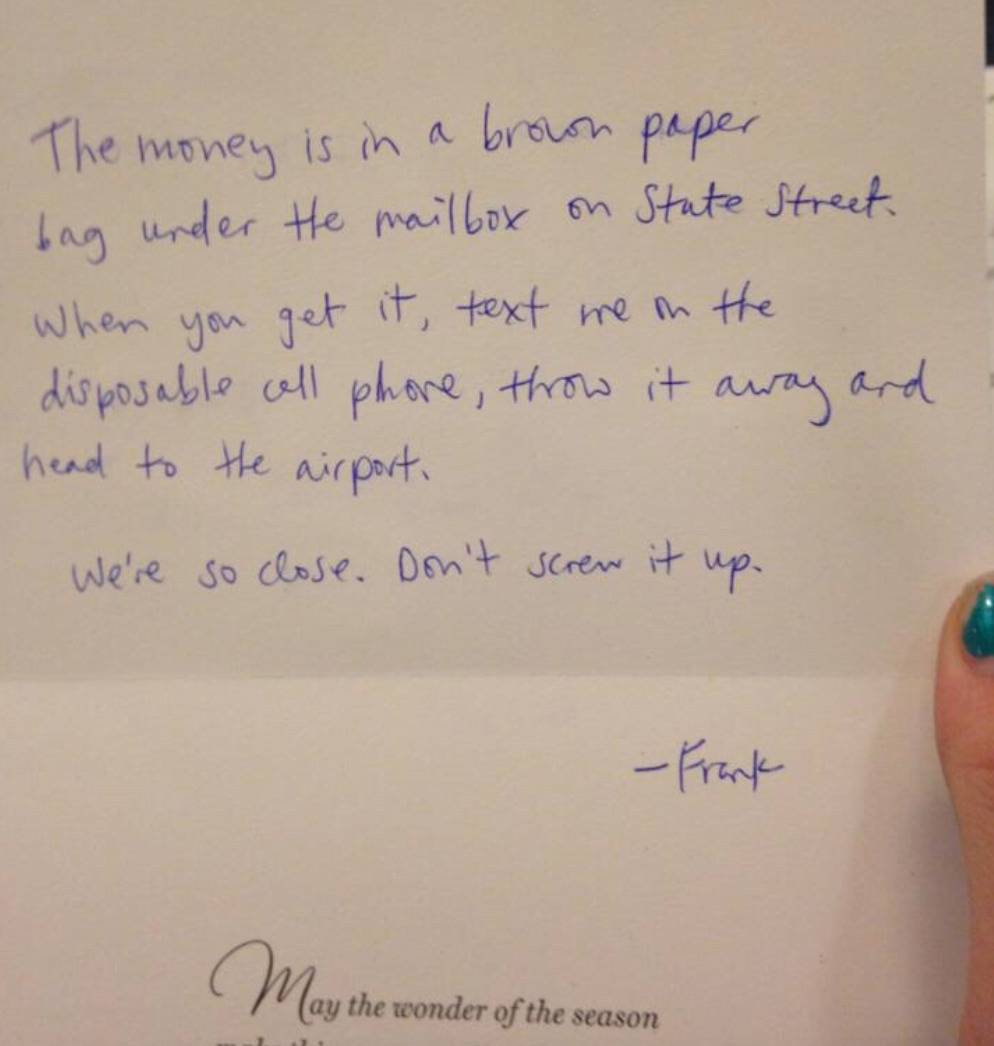 The money is in a brown paper
bag under the mailbox on State Street.
When you get it, text me on the
disposable cell phone, throw it away and
head to the airport.
We're so close. Don't screw it up.
–Frank
May the wonder of the season